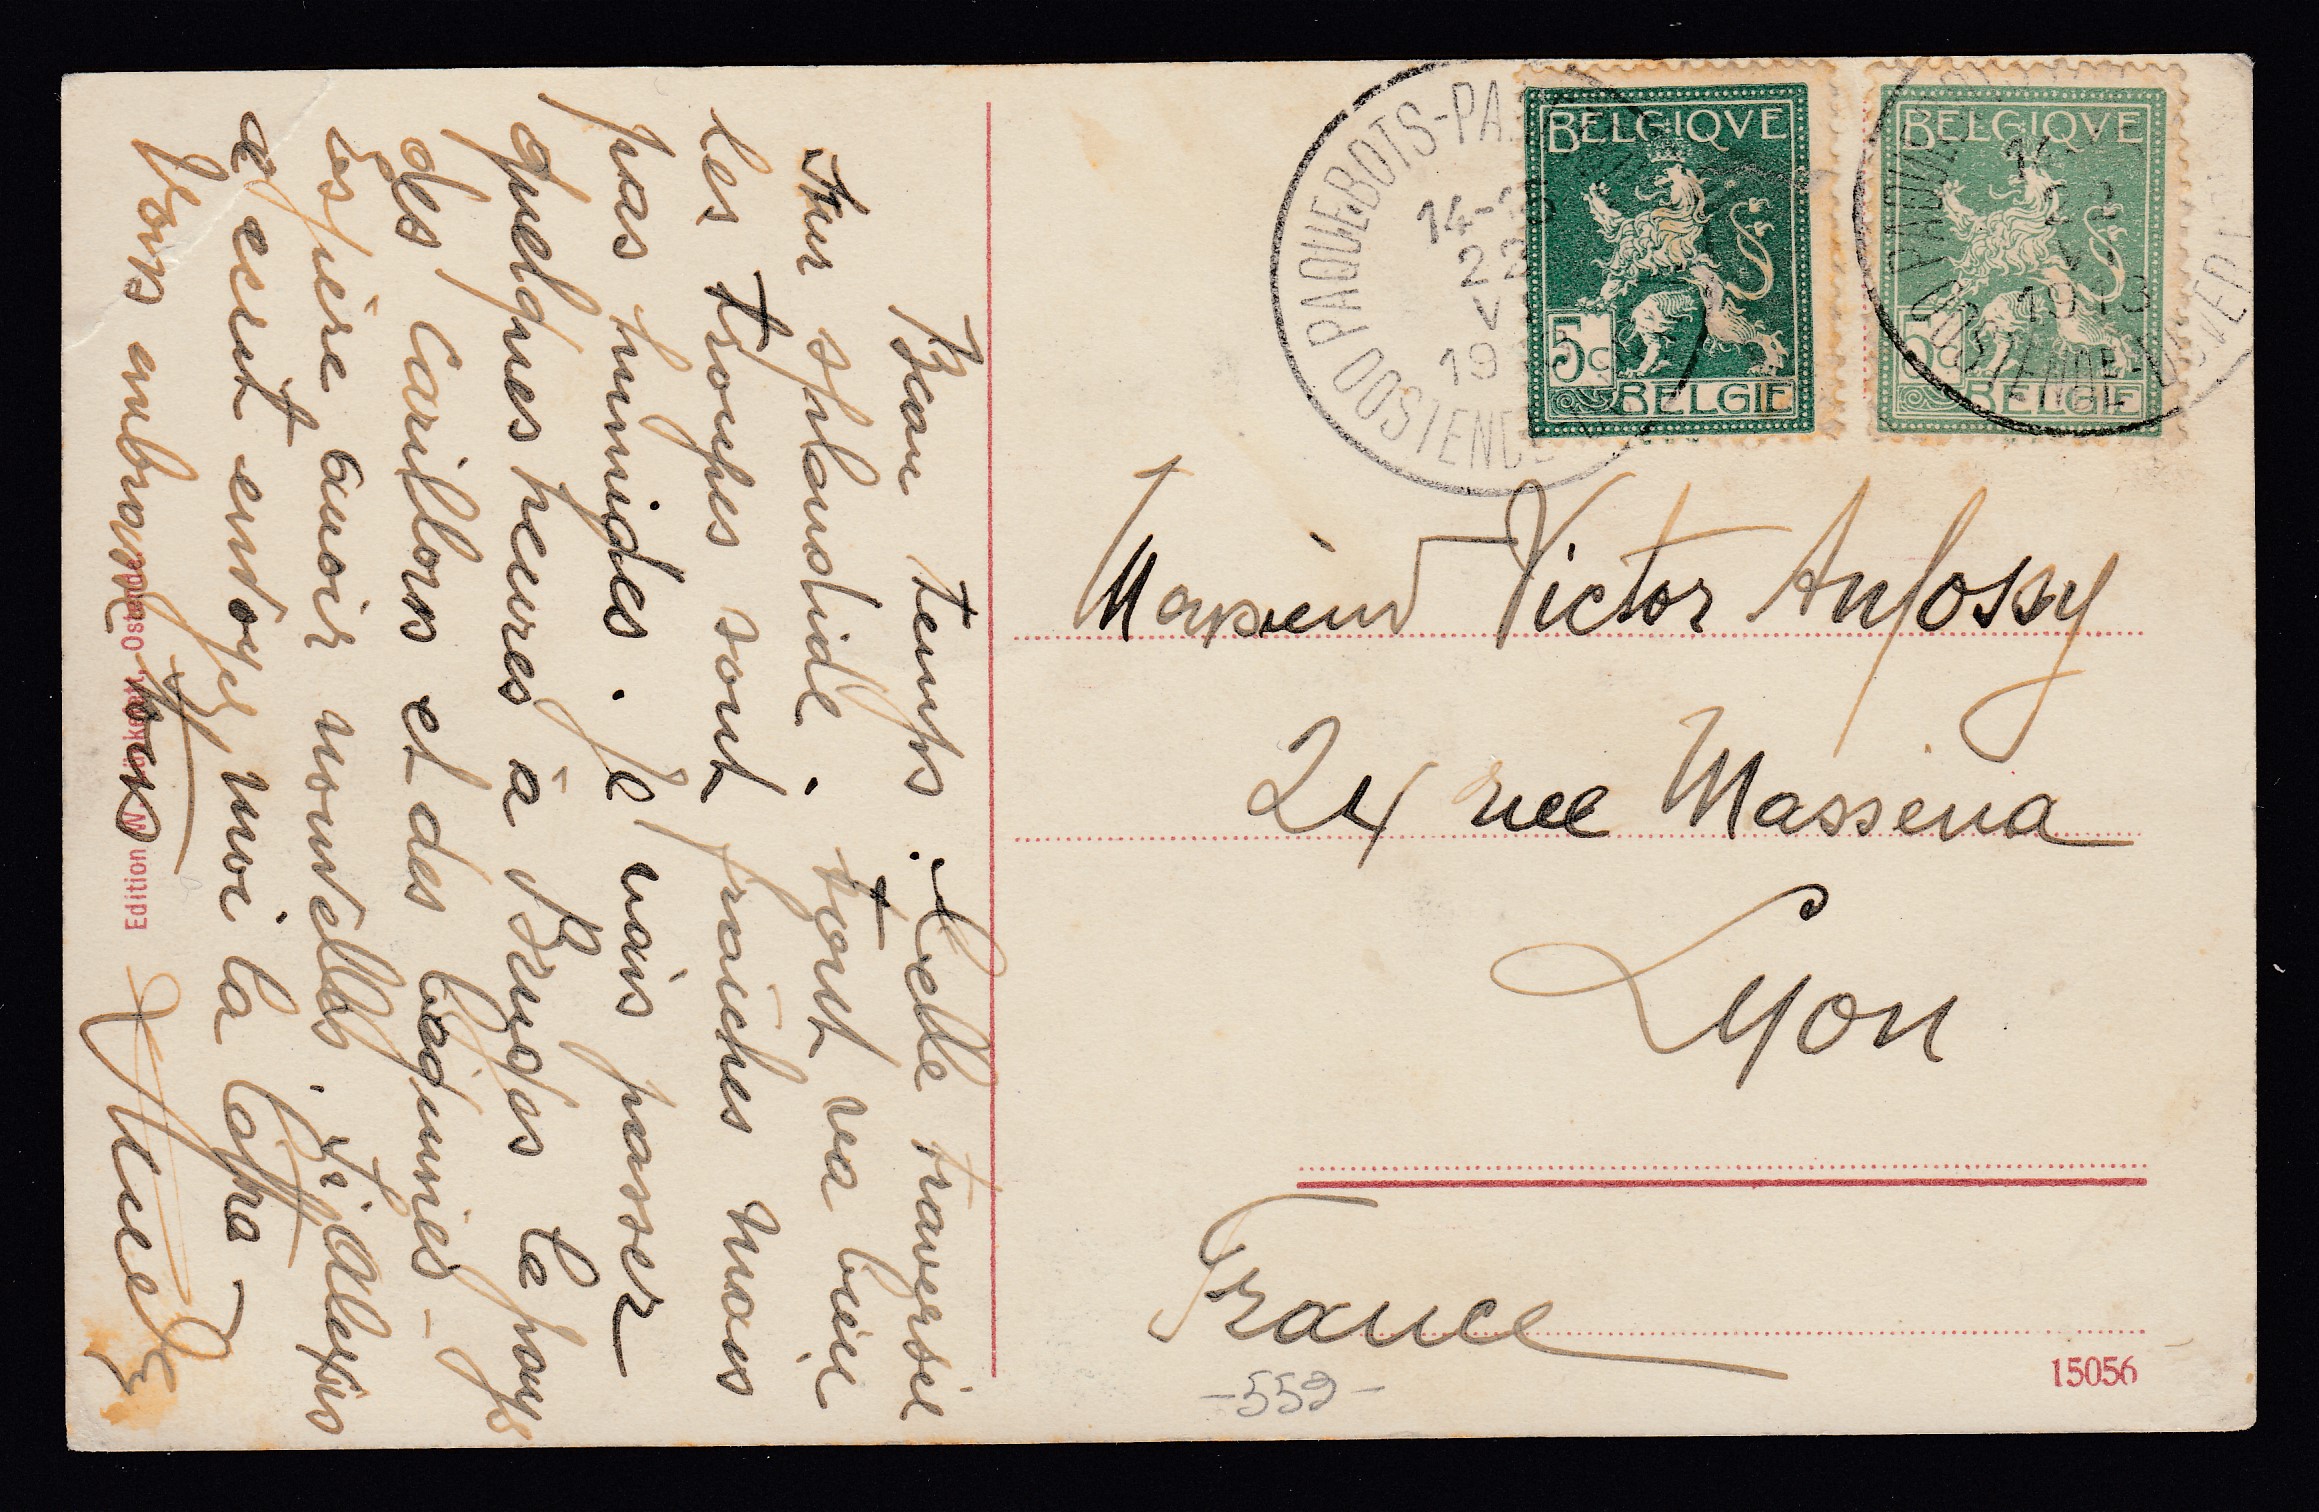 Beau temps. Belle traversée
Mer splendide. Tout va bien
les troupes sont fraîches mais
pas humides. Je vais passer
quelques heures à Bruges le pays
des Carillons et des béguines -
espère avoir nouvelles. Si Alexis
a écrit envoyez moi la
Vous embrasse tous
Edition W ökens, Ostende
PAQUEBOTS-PA
14-
22
V
19
OOSTENDE
BELGIQVE
5c
BELGIE
BELGIQVE
5c
BELGIE
14-
22
V
1913
OOSTENDE-DOVER
Monsieur Victor Anfossy
24 rue Massena
Lyon
France
-559-
15056